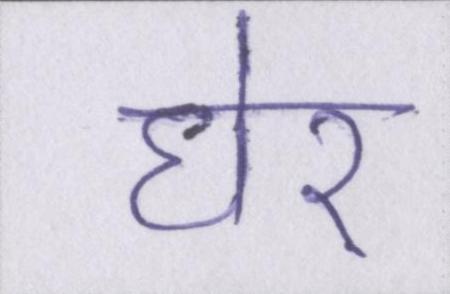 घेर